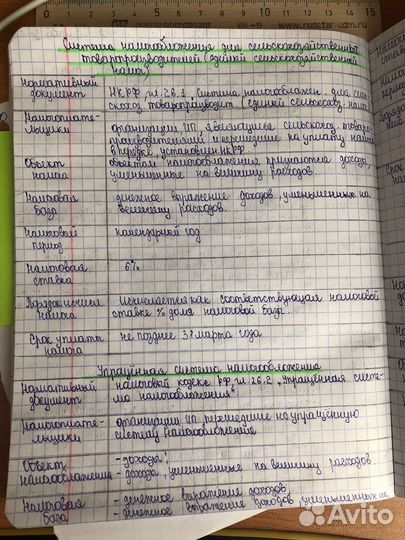 Система налогообложения для сельскохозяйственных
товаропроизводителей (единый сельскохозяйственный
налог)
Нормативный документ
НК РФ, гл 26.1, система налогообложен. для сель-
скохоз. товаропроизводит. (единый сельскохоз. налог)
Налогопла-
тельщики
организации, ИП, являющиеся сельскохоз. товаро-
производителями и перешедшие на уплату налога
в порядке, установлен НКРФ
Объект
налога
объектом налогообложения признаются доходы,
уменьшенные на величину расходов.
Налоговая
база
денежное выражение доходов, уменьшенных на
величину расходов.
Налоговый
период
календарный год
Налоговая
ставка
6%
Порядок исчисл
налога
Исчисляется как соответствующая налоговой
ставке % доля налоговой базы.
Срок уплаты
налога
не позднее 31 марта года
Упрощённая система налогообложения
Нормативный
документ
налоговый кодекс РФ, гл 26.2 „Упрощённая систе-
ма налогообложения"
Налогопла-
тельщики
организации ИП, перешедшие на упрощённую
систему налогообложения
Объект
налогообложения
- доходы
- доходы, уменьшенные на величину расходов
Налоговая
база
- денежное выражение доходов
- денежное выражение доходов, уменьшенных на
www.radstar-udm.ru
8 9 10 11 12 13 14 15
Avito